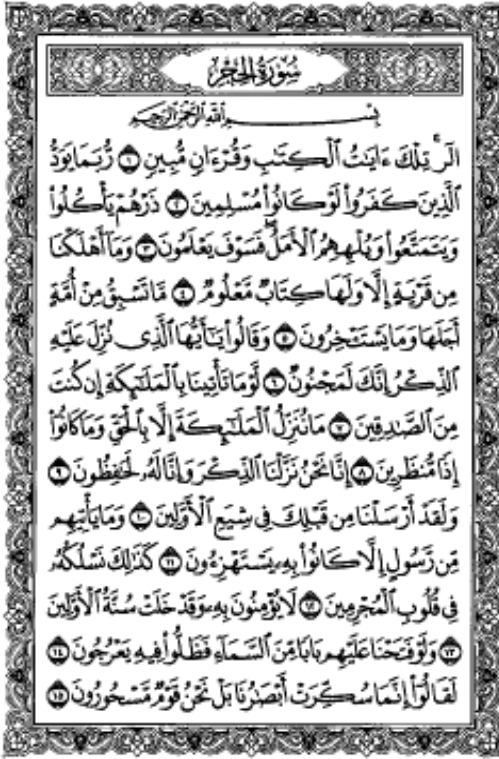 سُورَةُ الحِجْر
بِسْمِ ٱللَّهِ ٱلرَّحْمَٰنِ ٱلرَّحِيمِ
الٓر ۚ تِلْكَ ءَايَٰتُ ٱلْكِتَٰبِ وَقُرْءَانٍ مُّبِينٍ ١ رُّبَمَا يَوَدُّ
ٱلَّذِينَ كَفَرُوا۟ لَوْ كَانُوا۟ مُسْلِمِينَ ٢ ذَرْهُمْ يَأْكُلُوا۟
وَيَتَمَتَّعُوا۟ وَيُلْهِهِمُ ٱلْأَمَلُ ۖ فَسَوْفَ يَعْلَمُونَ ٣ وَمَآ أَهْلَكْنَا
مِن قَرْيَةٍ إِلَّا وَلَهَا كِتَابٌ مَّعْلُومٌ ٤ مَّا تَسْبِقُ مِنْ أُمَّةٍ
أَجَلَهَا وَمَا يَسْتَـْٔخِرُونَ ٥ وَقَالُوا۟ يَٰٓأَيُّهَا ٱلَّذِى نُزِّلَ عَلَيْهِ
ٱلذِّكْرُ إِنَّكَ لَمَجْنُونٌ ٦ لَّوْ مَا تَأْتِينَا بِٱلْمَلَٰٓئِكَةِ إِن كُنتَ
مِنَ ٱلصَّٰدِقِينَ ٧ مَا نُنَزِّلُ ٱلْمَلَٰٓئِكَةَ إِلَّا بِٱلْحَقِّ وَمَا كَانُوٓا۟
إِذًا مُّنظَرِينَ ٨ إِنَّا نَحْنُ نَزَّلْنَا ٱلذِّكْرَ وَإِنَّا لَهُۥ لَحَٰفِظُونَ ٩
وَلَقَدْ أَرْسَلْنَا مِن قَبْلِكَ فِى شِيَعِ ٱلْأَوَّلِينَ ١٠ وَمَا يَأْتِيهِم
مِّن رَّسُولٍ إِلَّا كَانُوا۟ بِهِۦ يَسْتَهْزِءُونَ ١١ كَذَٰلِكَ نَسْلُكُهُۥ
فِى قُلُوبِ ٱلْمُجْرِمِينَ ١٢ لَا يُؤْمِنُونَ بِهِۦ وَقَدْ خَلَتْ سُنَّةُ ٱلْأَوَّلِينَ
١٣ وَلَوْ فَتَحْنَا عَلَيْهِم بَابًا مِّنَ ٱلسَّمَآءِ فَظَلُّوا۟ فِيهِ يَعْرُجُونَ ١٤
لَقَالُوٓا۟ إِنَّمَا سُكِّرَتْ أَبْصَٰرُنَا بَلْ نَحْنُ قَوْمٌ مَّسْحُورُونَ ١٥